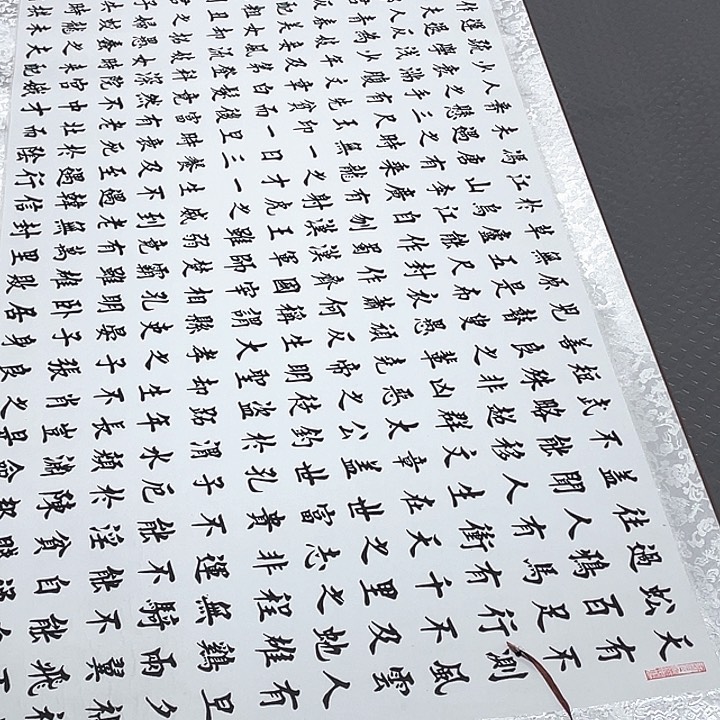 天有不測風雲人有旦夕
蚣百足行不及蛇雄雞兩翼飛不
過鴉馬有千里之程無騎不能自
往人有衝天之志非運不能自通
盖聞人生在世富貴不能淫貧賤
不能移文章盖世孔子厄於陳邦
武略超群太公釣於渭水顏淵命
短殊非凶惡之徒盗跖年長豈是
善良之輩堯帝明聖却生不肖之
兒瞽叟愚頑反生大孝之子張良
原是布衣蕭何稱謂縣吏晏子身
無五尺封作齊國宰相孔明卧居
草廬能作蜀漢軍師楚霸雖雄敗
於烏江自刎漢王雖弱竟有萬里
江山李廣有射虎之威到老無封
馮唐有乘龍之才一生不遇韓信
未遇之時無一日三餐及至遇行
懸三尺玉印一旦時衰死於陰
人之手有先貧而後富有老壯而
少衰滿腹文章白髮竟然不中才
疏學淺少年及第登科深院宮娥
運退反為妓妾風流妓女時來配